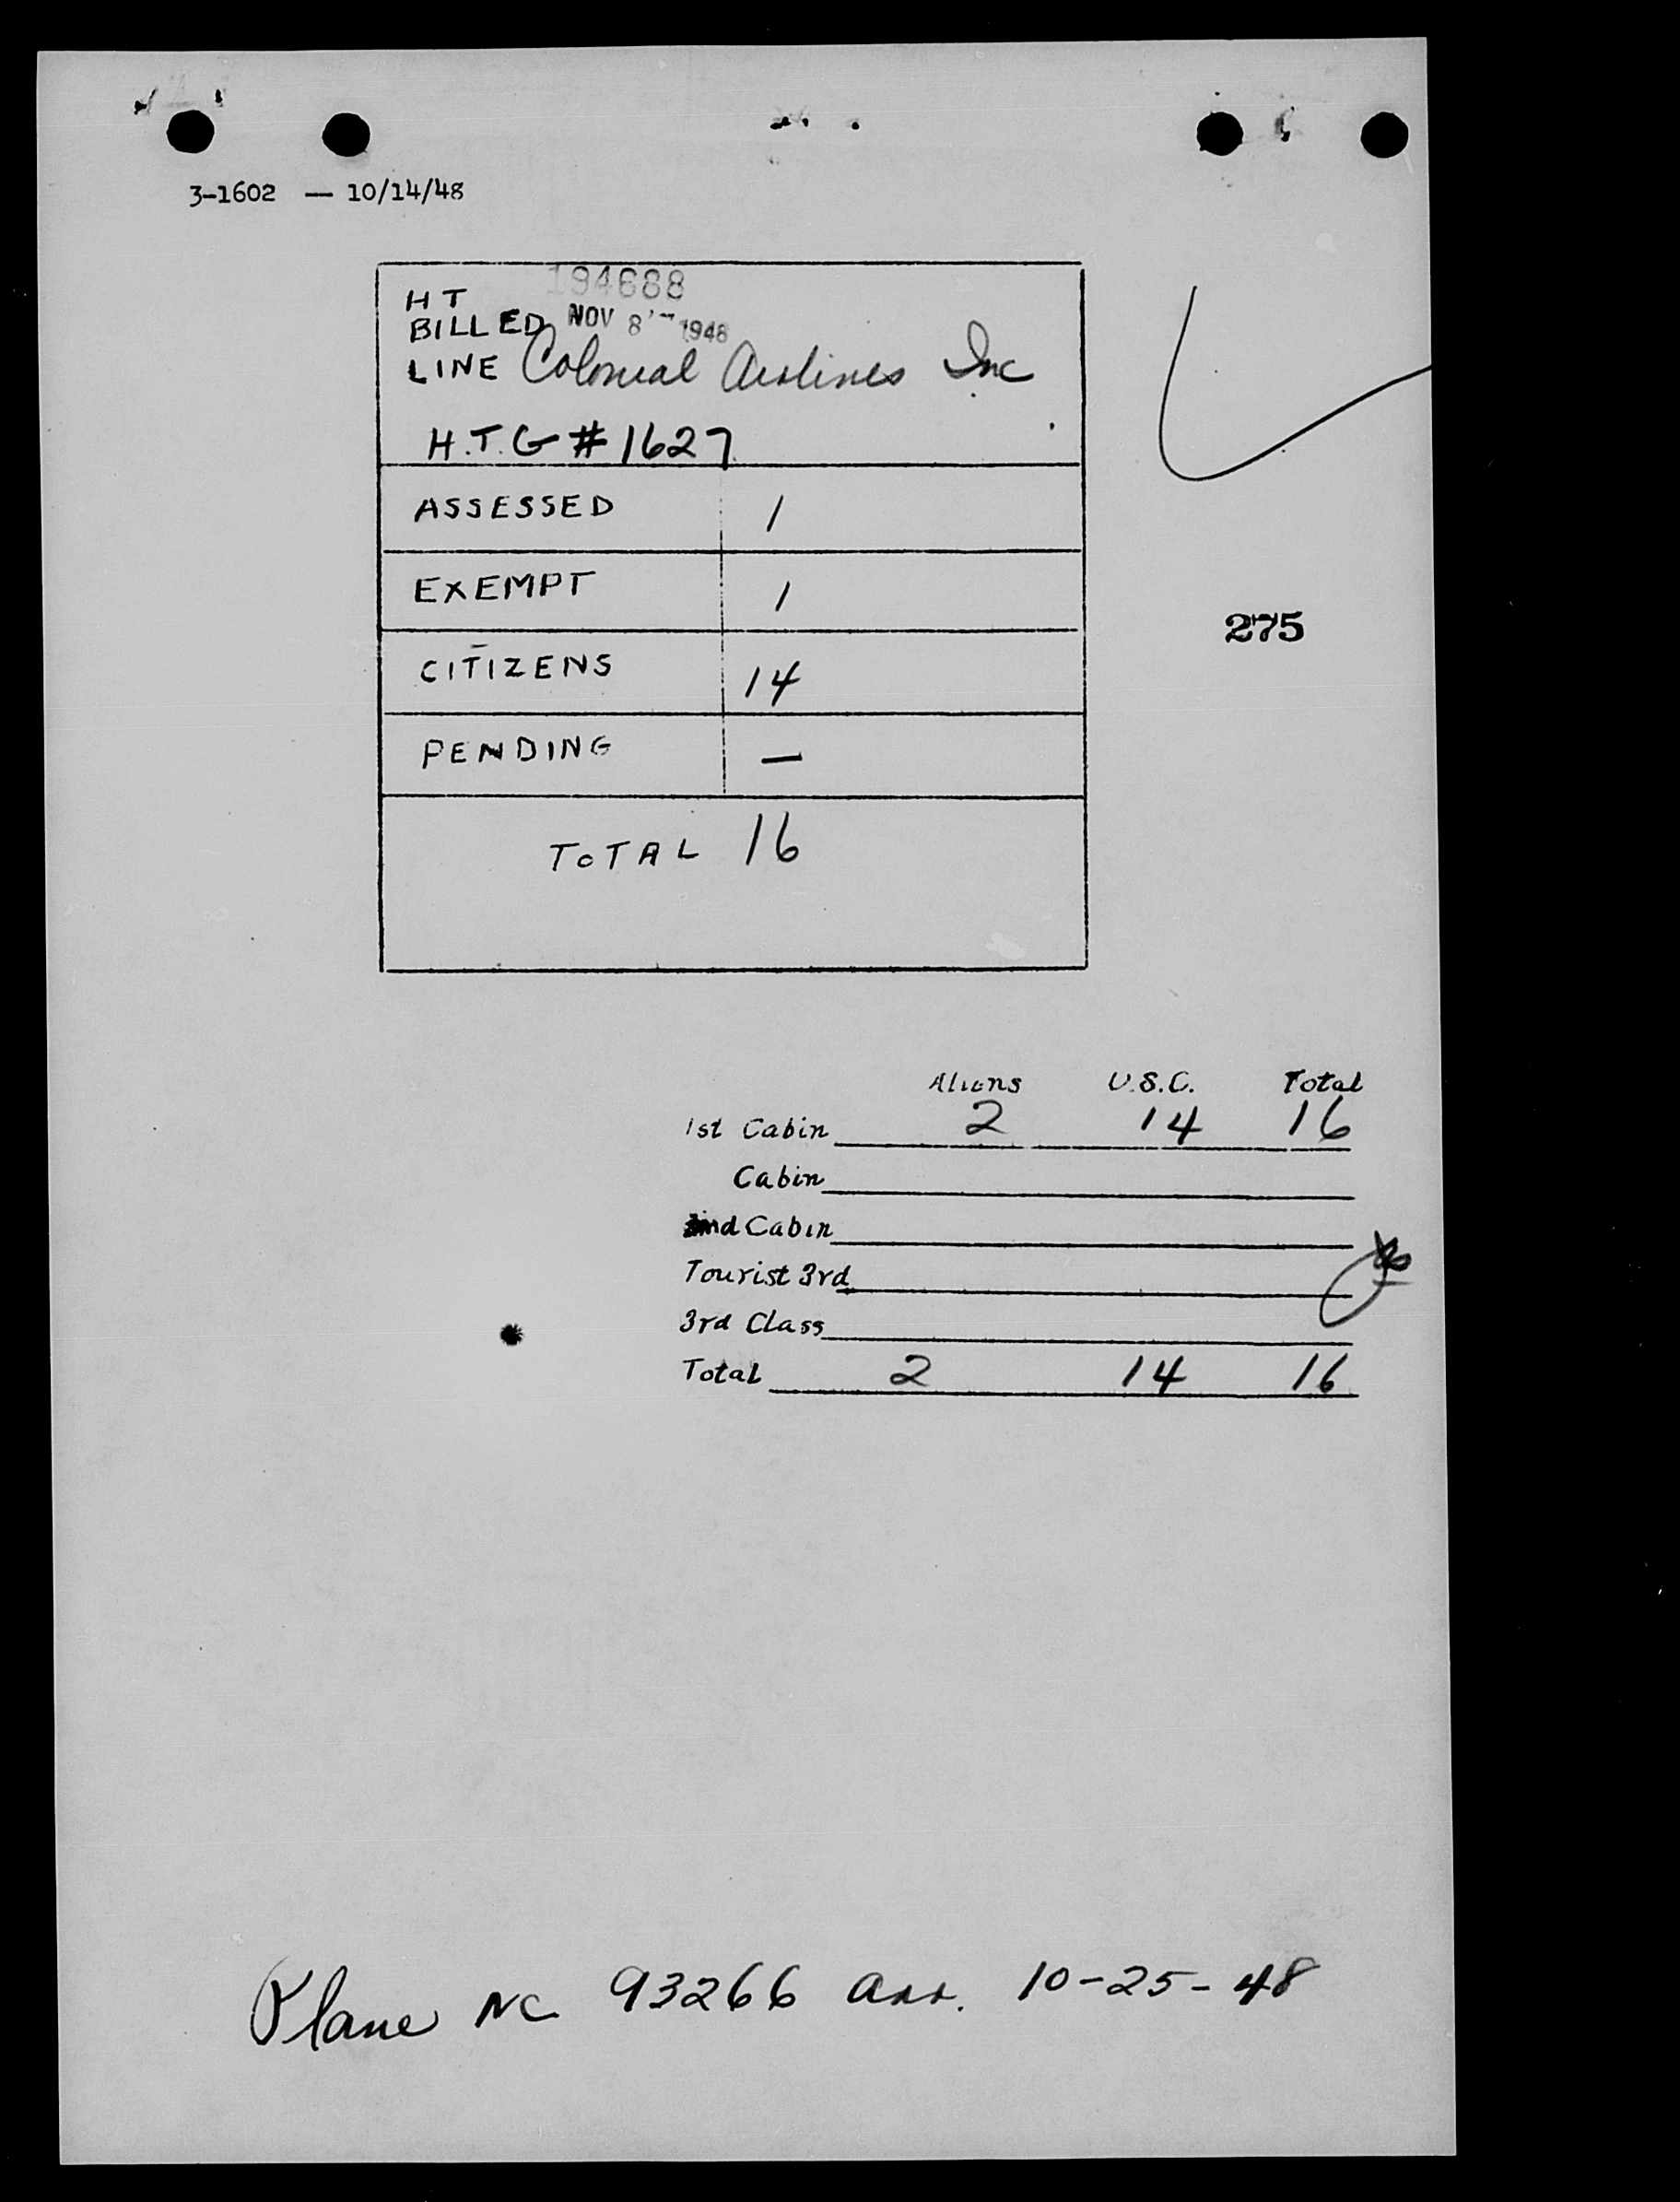 3-1602 — 10/14/48
194688
HT
BILLED NOV 8 1948
LINE Colonial Airlines Inc
H.T.G # 1627
ASSESSED 1
EXEMPT 1
275
CITIZENS 14
PENDING —
TOTAL 16
Aliens U.S.C. Total
1st Cabin 2 14 16
Cabin
2nd Cabin
Tourist 3rd
3rd Class
Total 2 14 16
Plane NC 93266 arr. 10-25-48